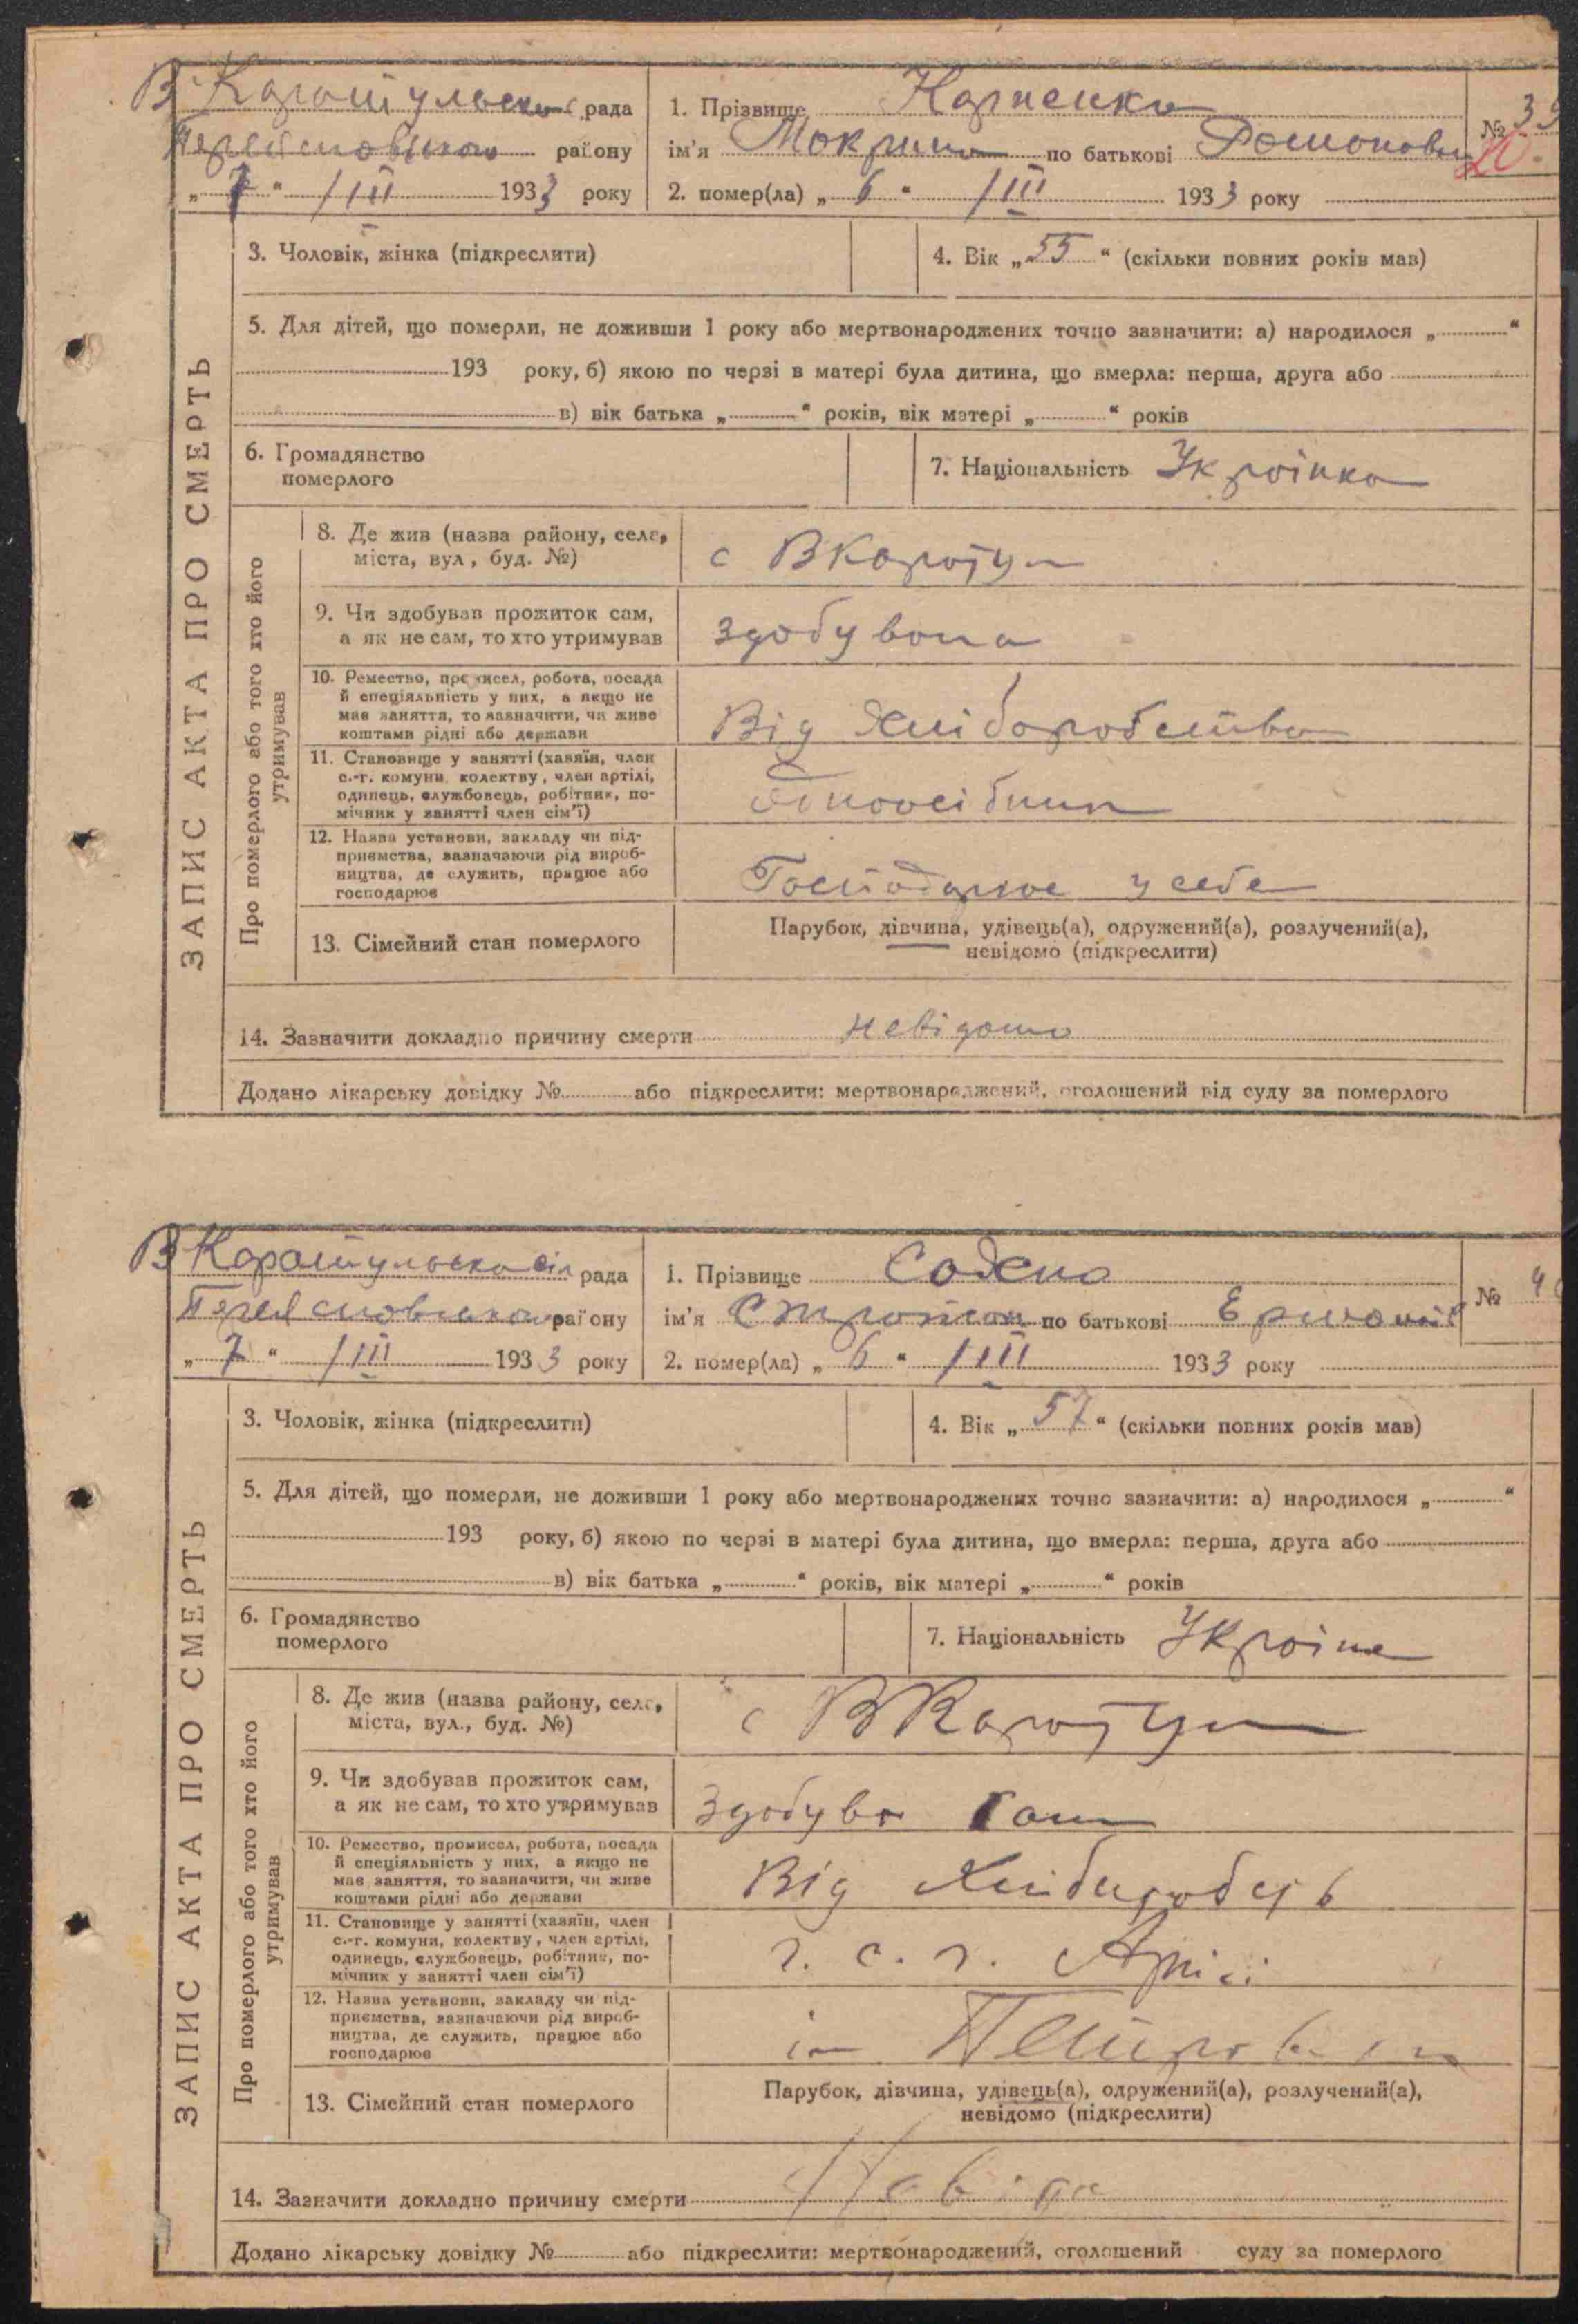 В Каратульська рада
Переяславського району
„ 7 “ /III 1933 року
1. Прізвище Карпенко
ім'я Мокрина по батькові Романовна
№ 39
2. помер(ла) „ 6 “ /III 1933 року
3. Чоловік, жінка (підкреслити)
4. Вік „ 55 “ (скільки повних років мав)
5. Для дітей, що померли, не доживши 1 року або мертвонароджених точно зазначити: а) народилося „ “
193 року, б) якою по черзі в матері була дитина, що вмерла: перша, друга або
в) вік батька „ “ років, вік матері „ “ років
6. Громадянство
померлого
7. Національність Українка
ЗАПИС АКТА ПРО СМЕРТЬ
Про померлого або того хто його
утримував
8. Де жив (назва району, села,
міста, вул, буд. №)
с ВКаратул
9. Чи здобував прожиток сам,
а як не сам, то хто утримував
здобувала
10. Ремество, промисел, робота, посада
й спеціяльність у них, а якщо не
має заняття, то зазначити, чи живе
коштами рідні або держави
Від хліборобства
11. Становище у занятті (хазяїн, член
с.-г. комуни, колектву, член артілі,
одинець, службовець, робітник, по-
мічник у занятті член сім'ї)
Одноосібник
12. Назва установи, закладу чи під-
приємства, зазначаючи рід вироб-
ництва, де служить, працює або
господарює
Господарює у себе
13. Сімейний стан померлого
Парубок, дівчина, удівець(а), одружений(а), розлучений(а),
невідомо (підкреслити)
14. Зазначити докладно причину смерти невідомо
Додано лікарську довідку № або підкреслити: мертвонароджений, оголошений від суду за померлого
В Каратульська сіл рада
Переяславського району
„ 7 “ /III 1933 року
1. Прізвище
ім'я по батькові
№
2. помер(ла) „ 6 “ /III 1933 року
3. Чоловік, жінка (підкреслити)
4. Вік „ 57 “ (скільки повних років мав)
5. Для дітей, що померли, не доживши 1 року або мертвонароджених точно зазначити: а) народилося „ “
193 року, б) якою по черзі в матері була дитина, що вмерла: перша, друга або
в) вік батька „ “ років, вік матері „ “ років
6. Громадянство
померлого
7. Національність
ЗАПИС АКТА ПРО СМЕРТЬ
Про померлого або того хто його
утримував
8. Де жив (назва району, села,
міста, вул., буд. №)
с ВКаратул
9. Чи здобував прожиток сам,
а як не сам, то хто утримував
здобував сам
10. Ремество, промисел, робота, посада
й спеціяльність у них, а якщо не
має заняття, то зазначити, чи живе
коштами рідні або держави
Від
11. Становище у занятті (хазяїн, член
с.-г. комуни, колектву, член артілі,
одинець, службовець, робітник, по-
мічник у занятті член сім'ї)
12. Назва установи, закладу чи під-
приємства, зазначаючи рід вироб-
ництва, де служить, працює або
господарює
13. Сімейний стан померлого
Парубок, дівчина, удівець(а), одружений(а), розлучений(а),
невідомо (підкреслити)
14. Зазначити докладно причину смерти
Додано лікарську довідку № або підкреслити: мертвонароджений, оголошений суду за померлого